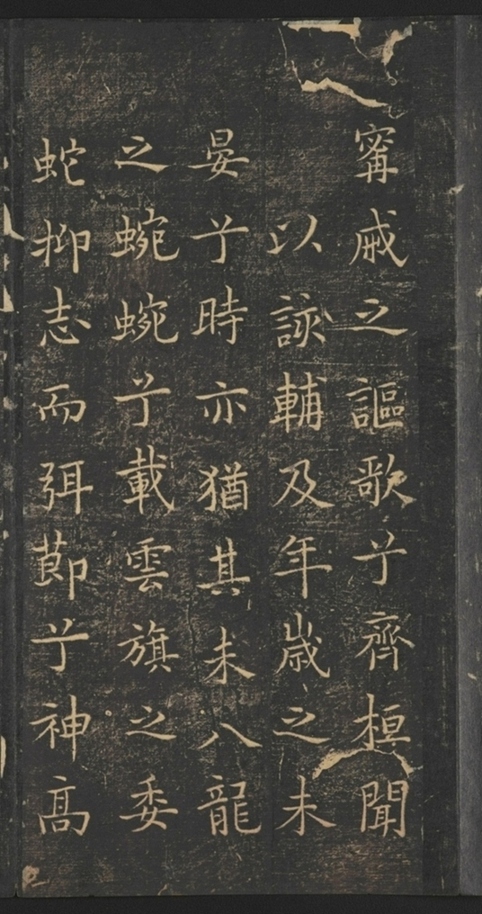 甯戚之謳歌兮齊桓聞
以詠輔及年歲之未
晏兮時亦猶其未八龍
之蜿蜿兮載雲旗之委
蛇抑志而弭節兮神高